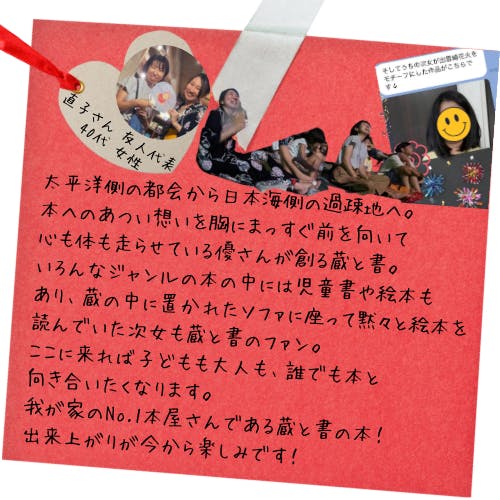 直子さん 友人代表
40代 女性
そしてうちの次女が出雲崎花火を
モチーフにした作品がこちらで
す↓
太平洋側の都会から日本海側の過疎地へ。
本へのあつい想いを胸にまっすぐ前を向いて
心も体も走らせている優さんが創る蔵と書。
いろんなジャンルの本の中には児童書や絵本も
あり、蔵の中に置かれたソファに座って黙々と絵本を
読んでいた次女も蔵と書のファン。
ここに来れば子どもも大人も、誰でも本と
向き合いたくなります。
我が家のNo.1本屋さんである蔵と書の本！
出来上がりが今から楽しみです！